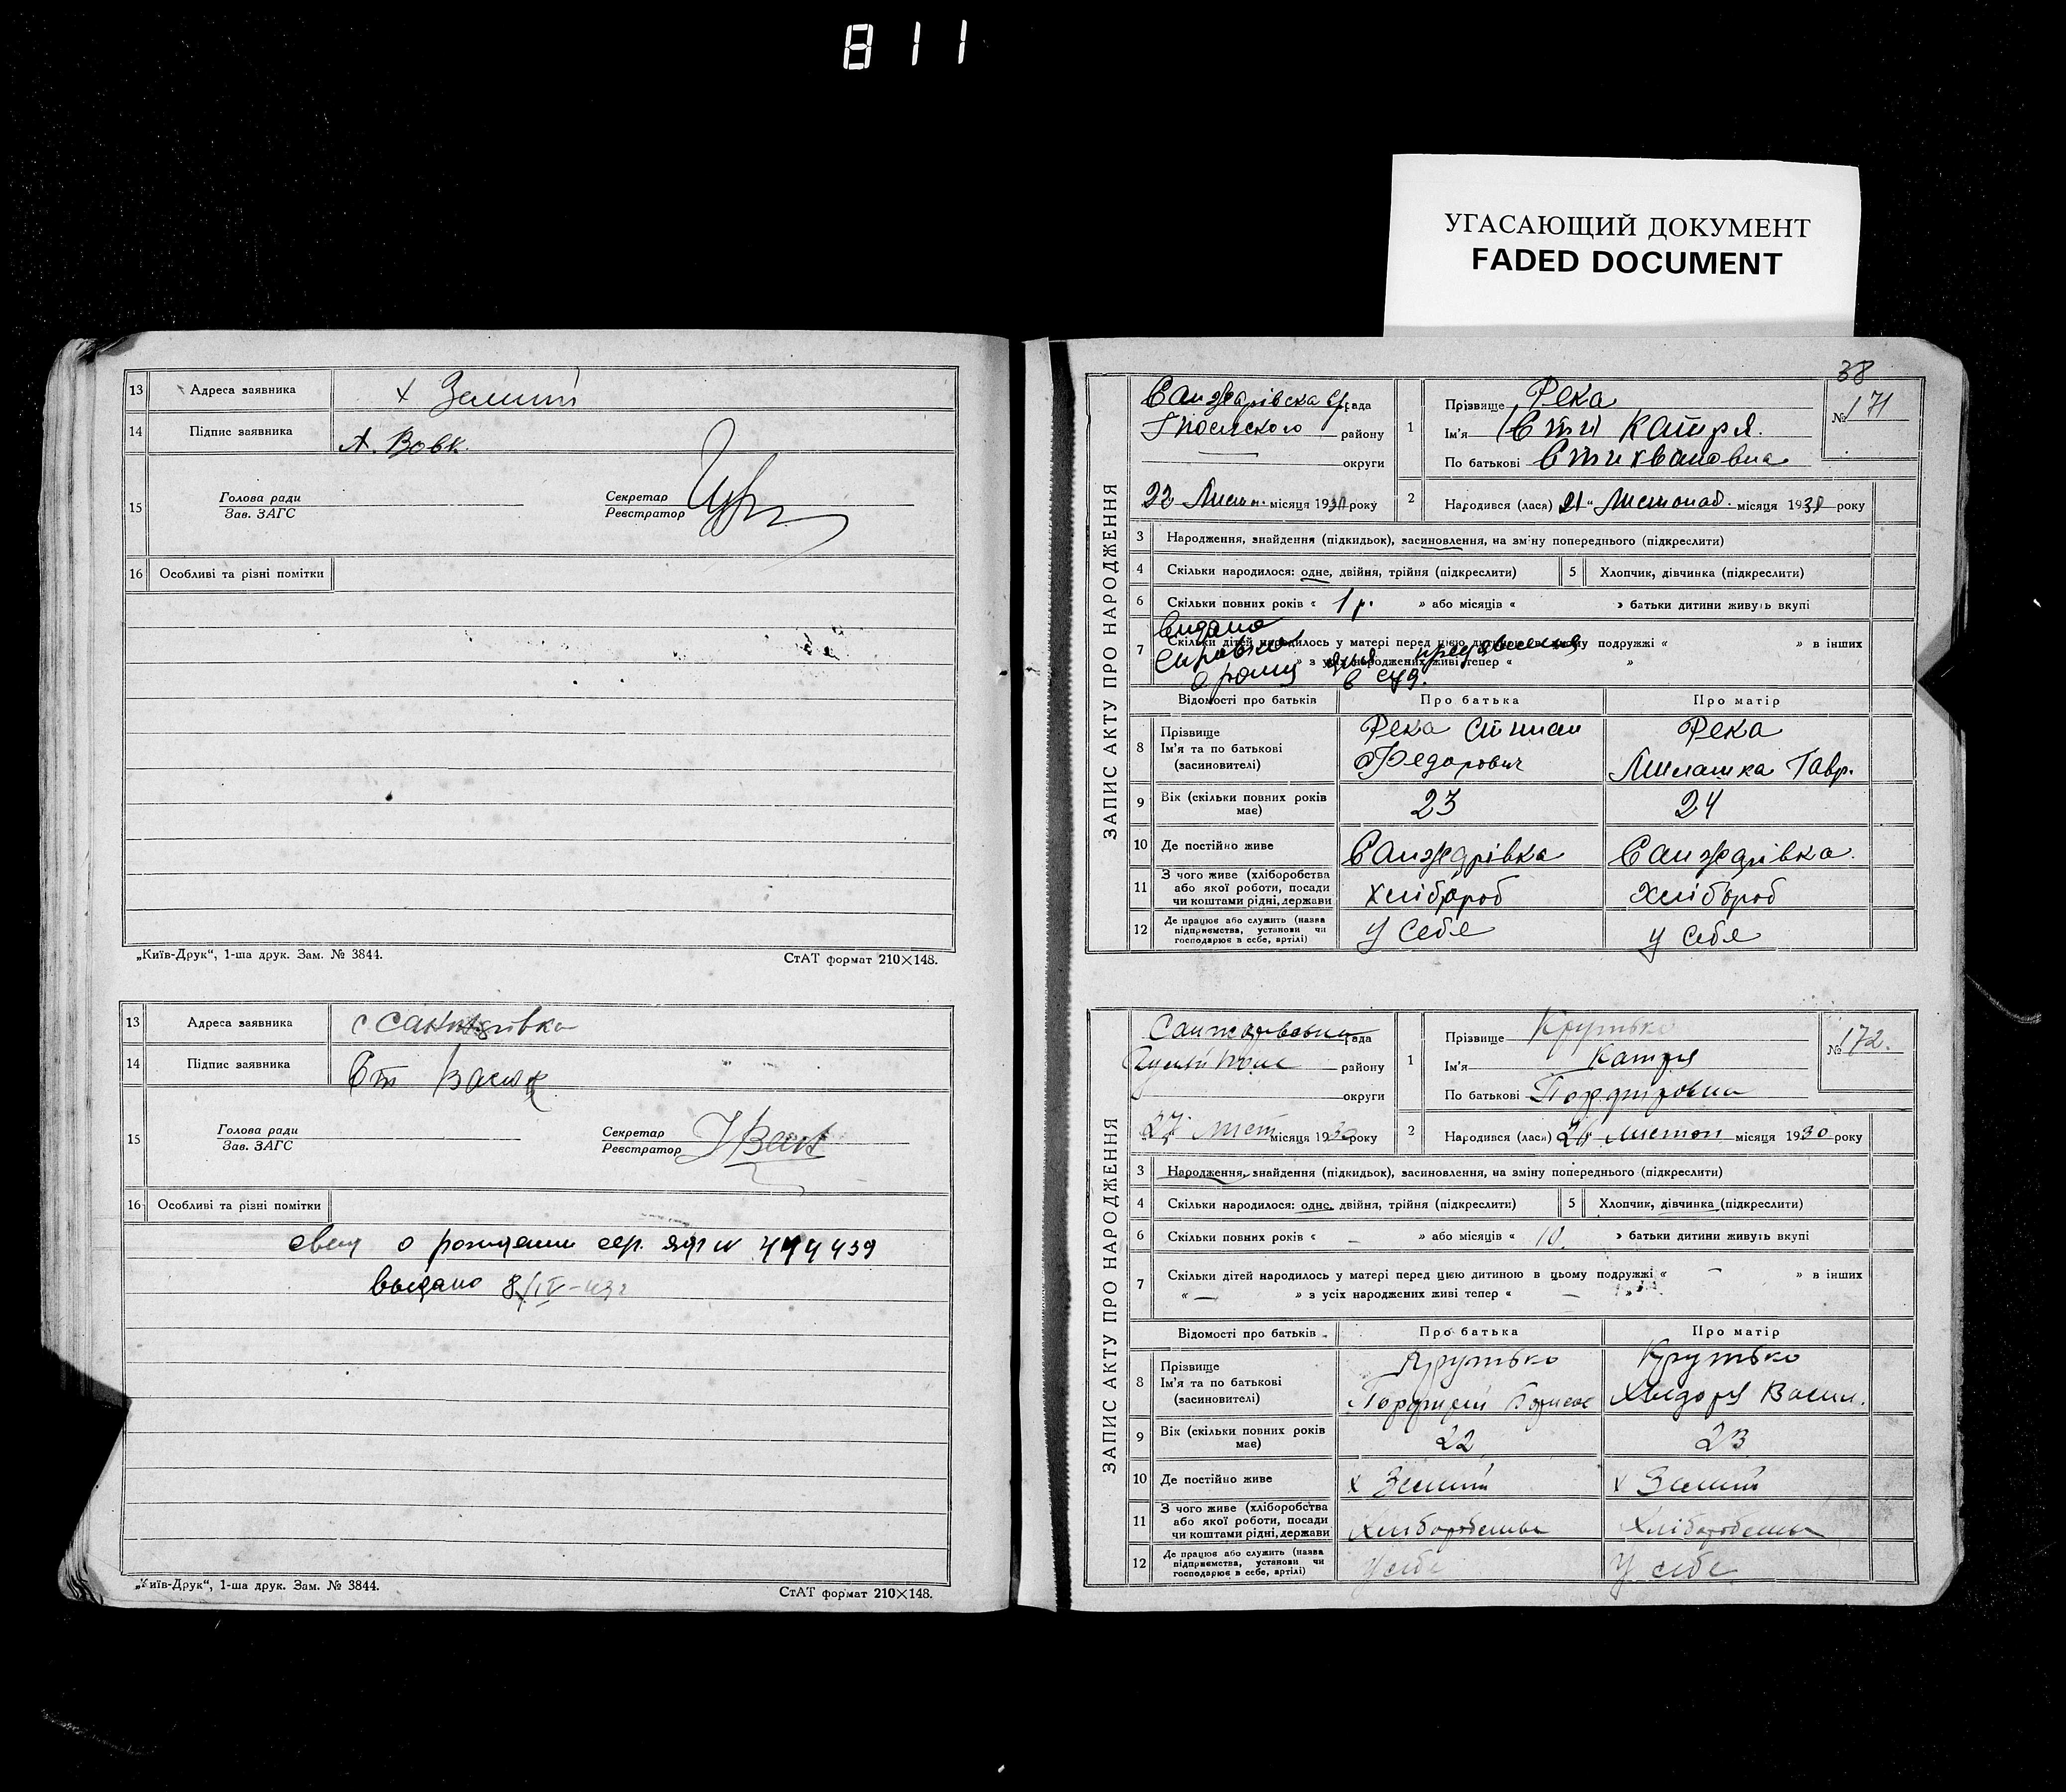 811
УГАСАЮЩИЙ ДОКУМЕНТ
FADED DOCUMENT
13 Адреса заявника х Зелиний
14 Підпис заявника А. Вовк.
15 Голова ради
Зав. ЗАГС
Секретар
Реєстратор
16 Особливі та різні помітки
„Київ-Друк“, 1-ша друк. Зам. № 3844. СтАТ формат 210×148.
13 Адреса заявника с Санжарівка
14 Підпис заявника
15 Голова ради
Зав. ЗАГС
Секретар
Реєстратор
16 Особливі та різні помітки
о рождении сер. № 444439
выдано 8/IV-
„Київ-Друк“, 1-ша друк. Зам. № 3844. СтАТ формат 210×148.
38
ЗАПИС АКТУ ПРО НАРОДЖЕННЯ
Санжарівска рада
району
округи
22 Листоп. місяця 1930 року
1 Прізвище Река
Ім'я Катря.
По батькові Стихвановна
№ 171
2 Народився (лася) 21 „ Листопад. місяця 1930 року
3 Народження, знайдення (підкидьок), засиновлення, на зміну попереднього (підкреслити)
4 Скільки народилося: одне, двійня, трійня (підкреслити)
5 Хлопчик, дівчинка (підкреслити)
6 Скільки повних років « 1 р. » або місяців « » батьки дитини живуть вкупі
7 Скільки дітей народилось у матері перед цією дитиною в цьому подружжі « » в інших
» з усіх народжених живі тепер « »
Видана
справка для предявления
в суд.
Відомості про батьків Про батька Про матір
8 Прізвище
Ім'я та по батькові
(засиновителі)
Река Стипан
Федорович
Река
Милашка Гавр.
9 Вік (скільки повних років має) 23 24
10 Де постійно живе Санжарівка Санжарівка.
11 З чого живе (хліборобства або якої роботи, посади чи коштами рідні, держави Хлібороб Хлібороб
12 Де працює або служить (назва підприємства, установи чи господарює в себе, артілі) У себе у себе
ЗАПИС АКТУ ПРО НАРОДЖЕННЯ
рада
району
округи
27 Лист. місяця 1930 року
1 Прізвище Крутько
Ім'я Катря
По батькові Порфировна
№ 172.
2 Народився (лася) 26 Листоп місяця 1930 року
3 Народження, знайдення (підкидьок), засиновлення, на зміну попереднього (підкреслити)
4 Скільки народилося: одне, двійня, трійня (підкреслити)
5 Хлопчик, дівчинка (підкреслити)
6 Скільки повних років « – » або місяців « 10. » батьки дитини живуть вкупі
7 Скільки дітей народилось у матері перед цією дитиною в цьому подружжі « – » в інших
« — » з усіх народжених живі тепер « — »
Відомості про батьків Про батька Про матір
8 Прізвище
Ім'я та по батькові
(засиновителі)
Крутько
Порфирій
Крутько
Хвидоря Васил.
9 Вік (скільки повних років має) 22 23
10 Де постійно живе х Зелиний х Зелиний
11 З чого живе (хліборобства або якої роботи, посади чи коштами рідні, держави
12 Де працює або служить (назва підприємства, установи чи господарює в себе, артілі) У себе У себе